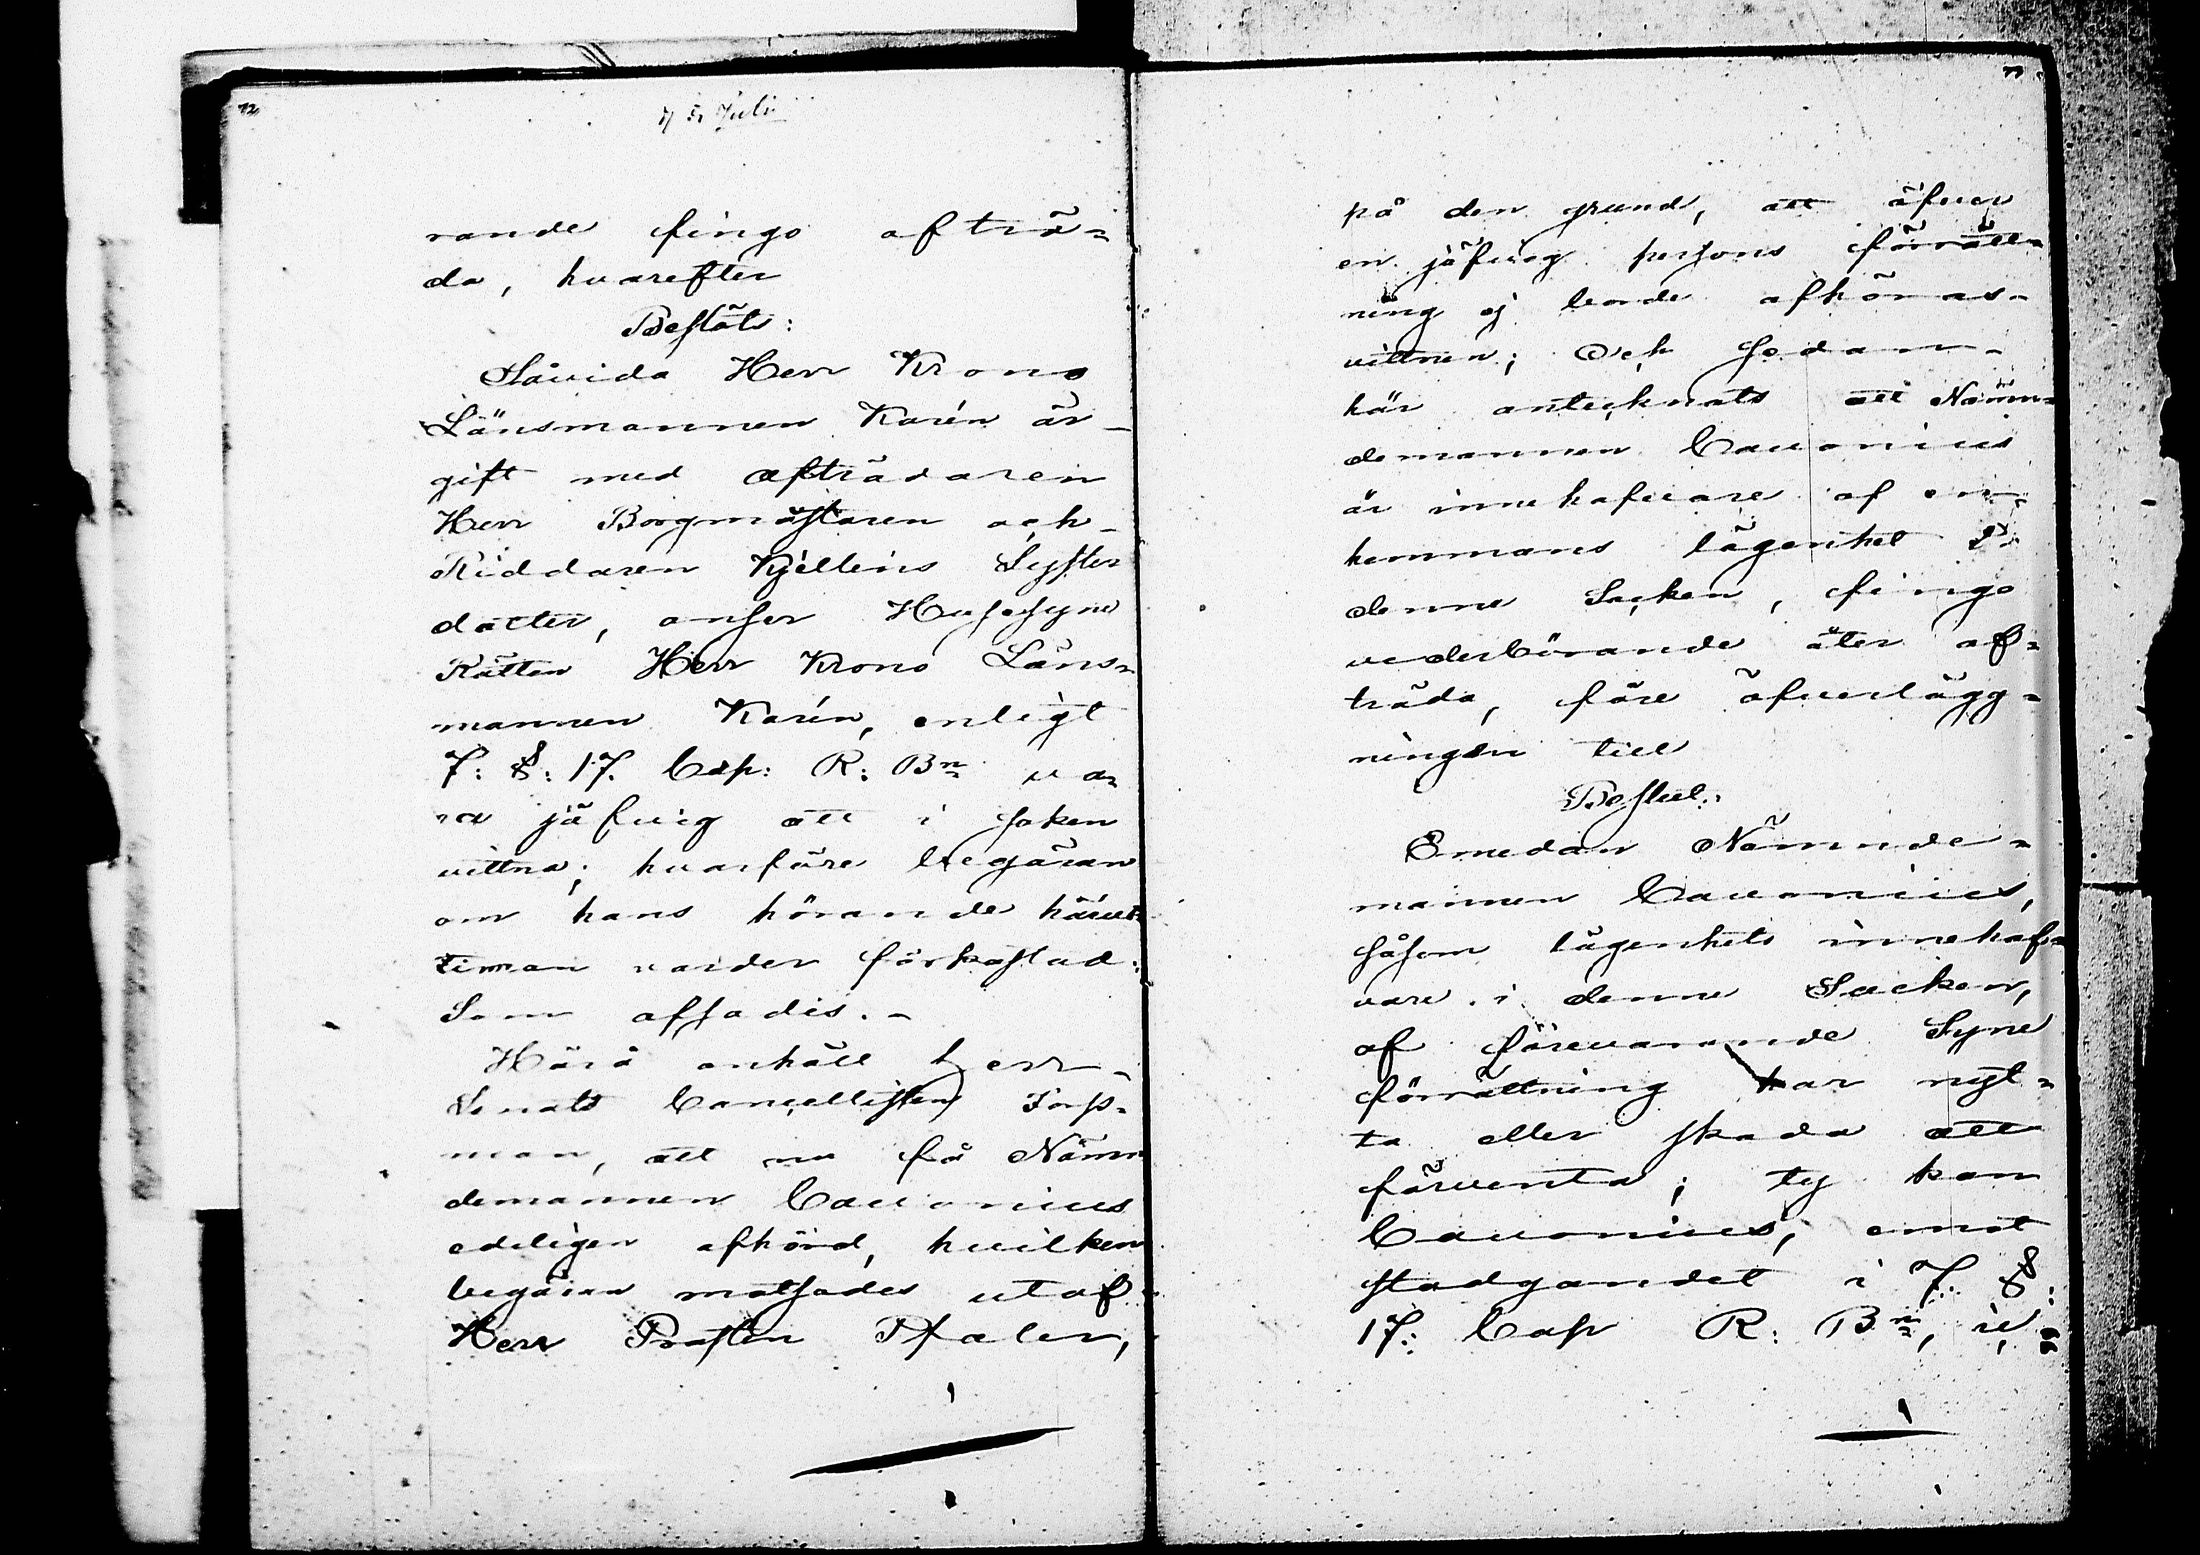 72
rande fingo afträ=
da, hvarefter
Beslöts:
Såvida Herr Krono
Länsmannen Karén är
gift med afträdaren
Herr Borgmästaren och
Riddaren Kjelléns Syster
dotter, anser Husesyns
Rätten Herr Krono Läns=
mannen Karén, enligt
7: §: 17. Cap: R: Bn va=
ra jäfvig att i saken
vittna; hvarföre begäran
om hans hörande härut
timan varder förkastad:
Som afsades.
Härå anhöll herr
Senats Cancellisten Forss=
man, att nu få Nämn
demannen Cavonius
edeligen afhörd, hvilken
begäran motsades utaf
Herr Prosten Pfaler,
på den grund, att äfver
en jäfvig persons förrätt=
ning ej borde afhöras
vittnen; Och sedan
här antecknats att Nämn=
demannen Cavonius
är innehafvare af en
hemmans lägenhet i
denne Socken, fingo
vederbörande åter af=
träda, före öfverlägg=
ningen till
Beslut:
Emedan Nämnde=
mannen Cavonius,
såsom lägenhets innehaf=
vare i denne Socken,
af förevarande Syne
förrättning har nyt=
ta eller skada att
förvänta; ty kan
Cavonius, emot
stadgandet i 7. §:
17: Cap R: Bn,